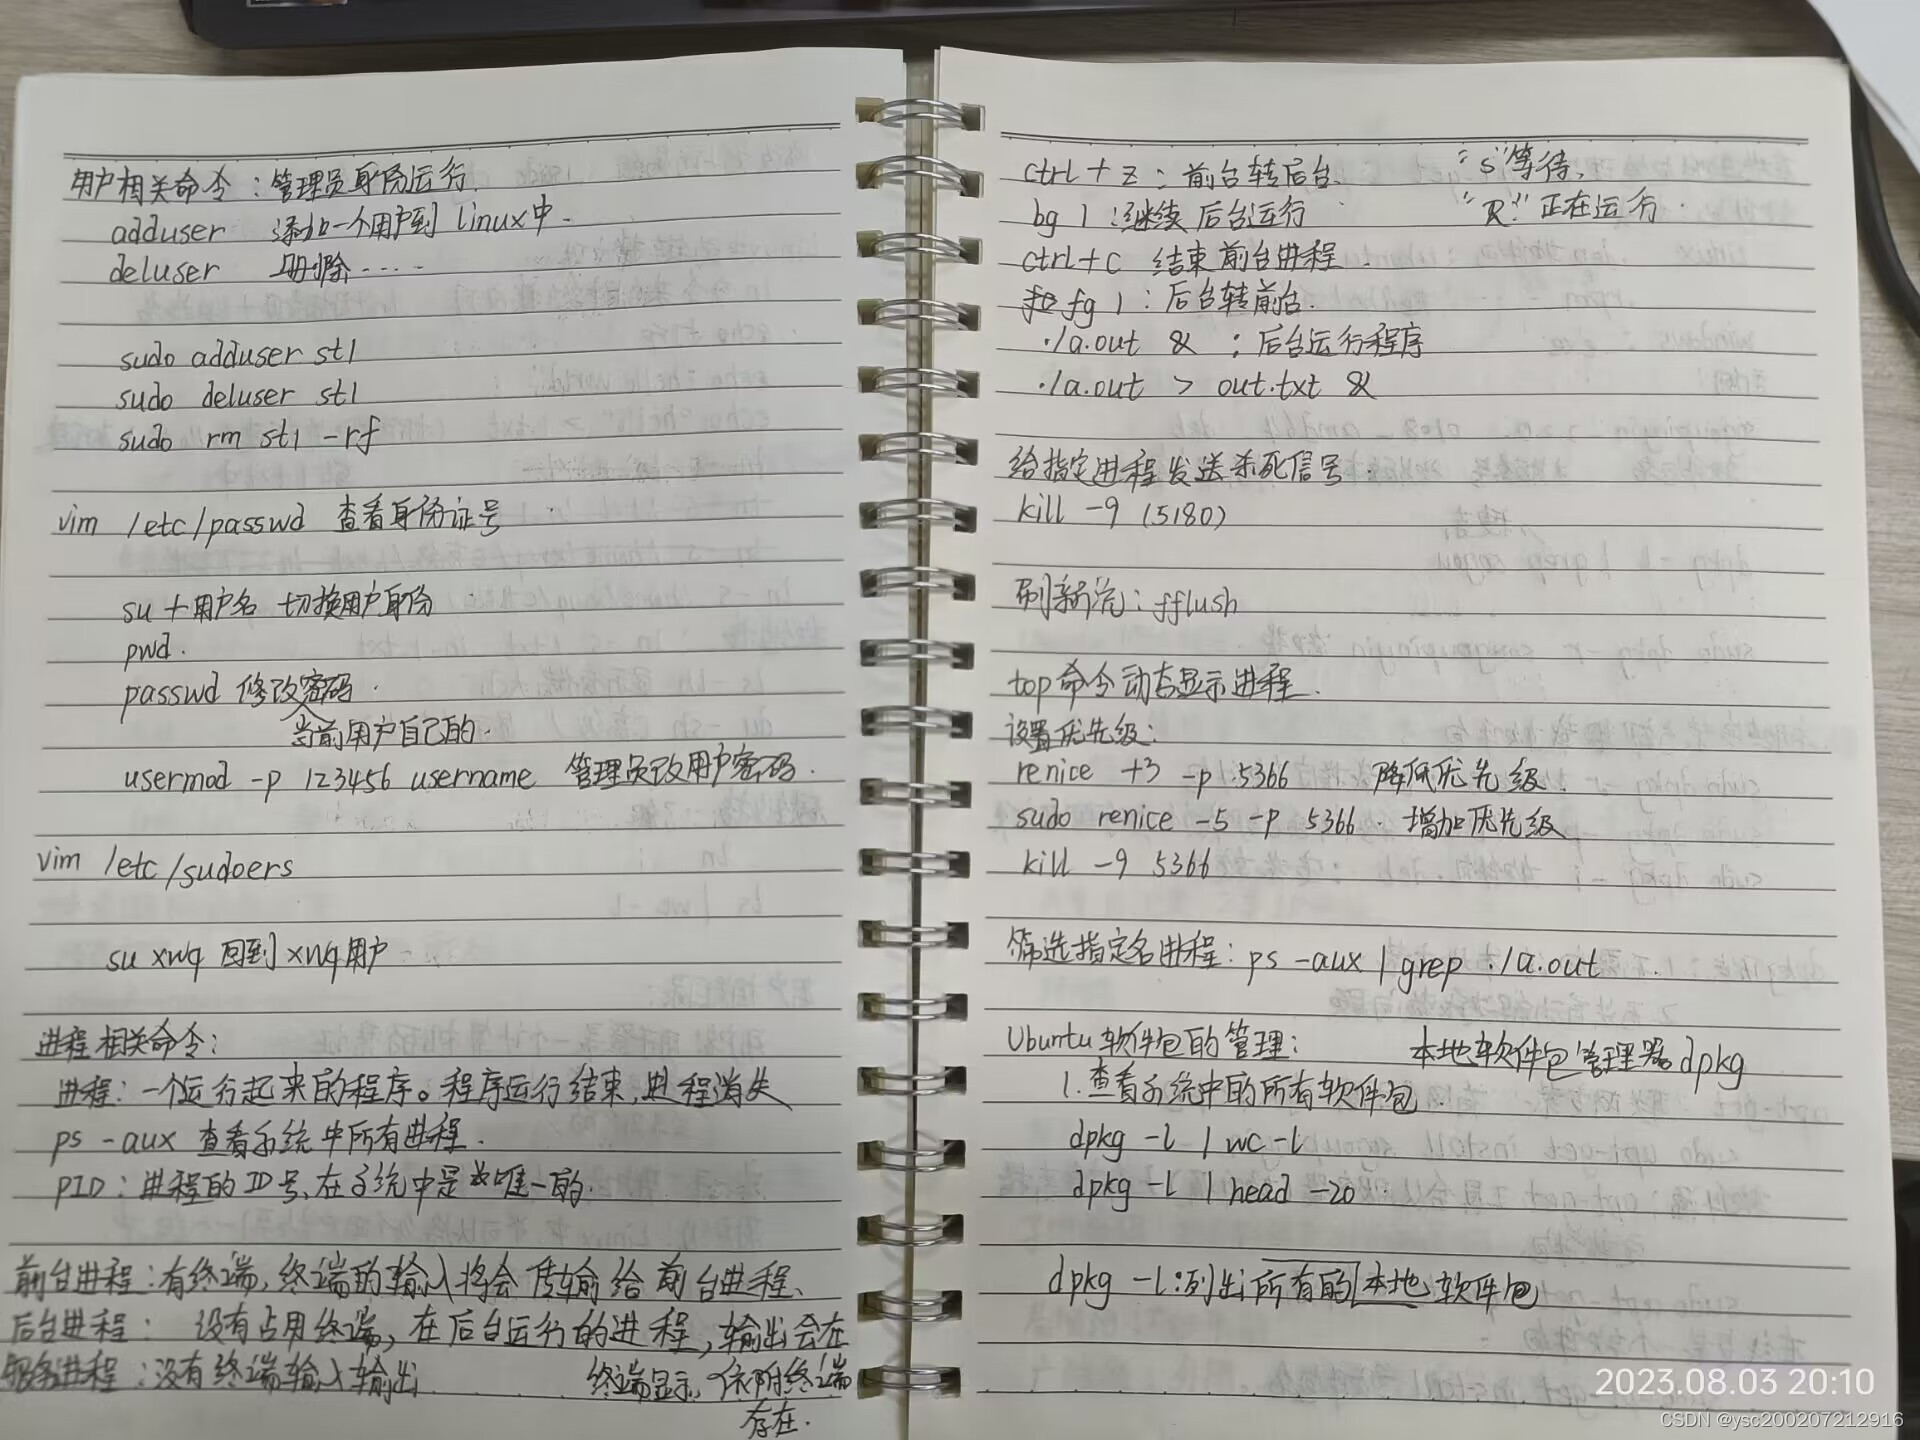 用户相关命令：管理员身份运行
adduser 添加一个用户到 linux中.
deluser 删除.....
sudo adduser st1
sudo deluser st1
sudo rm st1 -rf
vim /etc/passwd 查看身份证号
su + 用户名 切换用户身份
pwd.
passwd 修改密码.
当前用户自己的.
usermod -p 123456 username 管理员改用户密码.
vim /etc/sudoers
su xwq 回到 xwq用户
进程相关命令：
进程：一个运行起来的程序。程序运行结束,进程消失
ps -aux 查看系统中所有进程.
PID：进程的ID号,在系统中是唯一的.
前台进程：有终端,终端的输入将会传输给前台进程、
后台进程：没有占用终端,在后台运行的进程,输出会在
终端显示。依附终端
存在.
服务进程：没有终端输入输出
ctrl + z：前台转后台. "S"等待,
bg 1：继续后台运行 "R" 正在运行.
ctrl+c 结束前台进程.
fg 1：后台转前台.
./a.out & ；后台运行程序
./a.out > out.txt &
给指定进程发送杀死信号.
kill -9 (5180)
刷新流：fflush
top命令动态显示进程.
设置优先级：
renice +3 -p 5366 降低优先级.
sudo renice -5 -p 5366. 增加优先级
kill -9 5366
筛选指定名进程：ps -aux | grep ./a.out
Ubuntu软件包的管理： 本地软件包管理器dpkg
1.查看系统中的所有软件包.
dpkg -l | wc -l
dpkg -l | head -20
dpkg -l：列出所有的本地软件包
2023.08.03 20:10
CSDN @ysc200207212916